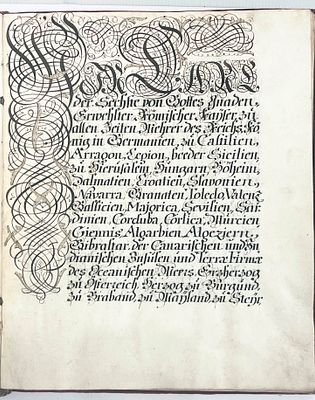 Wir Carl
der Sechste von Gottes Gnaden,
Erwehlter Römischer Kayser, zu
allen Zeiten Mehrer des Reichs, Kö
nig in Germanien, zu Castilien,
Arragon, Legion, beeder Sicilien,
zu Hierusalem, Hungarn, Böheim,
Dalmatien, Croatien, Sclavonien,
Navarra, Granaten, Toledo, Valenz
Gallicien, Majorica, Sevilien, Sar
dinien, Corduba, Corsica, Murcien
Giennis, Algarbien, Algeziern,
Gibraltar, der Canarischen und In
dianischen Insulen und Terræ Firmæ
des Oceanischen Meers, Erzherzog
zu Osterreich, Herzog zu Burgund,
zu Braband, zu Mayland, zu Steyr